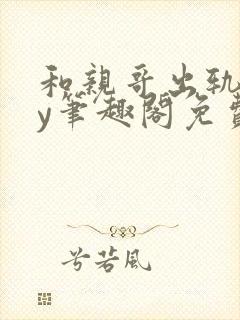 和親哥出轨
y筆趣閣免費
兮若風